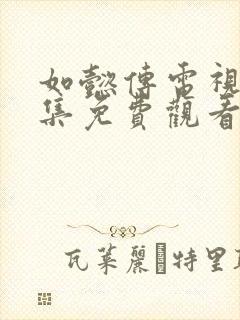 如懿傳電視
集免費觀看
瓦萊麗 特里